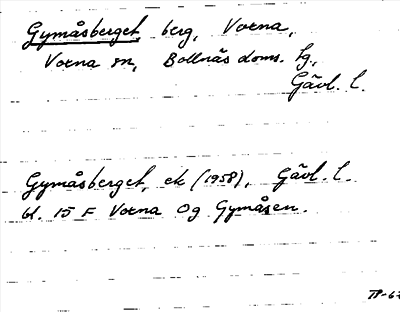 Gymåsberget, berg, Voxna,
Voxna sn, Bollnäs doms. tg.,
Gävl. l.
Gymåsberget, ek (1958), Gävl. l.
bl. 15 F Voxna Og Gymåsen.